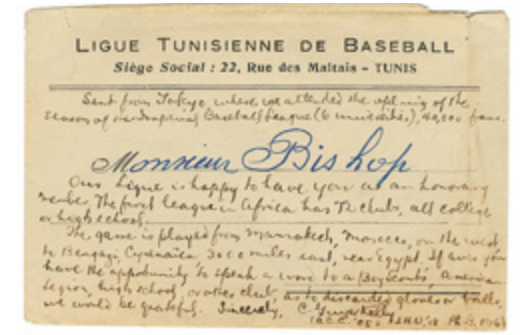 LIGUE TUNISIENNE DE BASEBALL
Siège Social : 22, Rue des Maltais - TUNIS
Sent from Tokyo, where we attended the opening of the
season of Baseball League (6 universities), 40,000 fans.
Monsieur Bishop
Our Ligue is happy to have you as an honorary
member. The first league in Africa has 72 clubs, all college
or high school.
The game is played from Marrakech, Morocco, on the west,
to Bengazi, Cyrenaica 3000 miles east, near Egypt. If ever you
have the opportunity to speak a word to a Boy Scouts, American
Legion, high school, or other club, as to discarded gloves or balls,
we would be grateful. Sincerely, C.